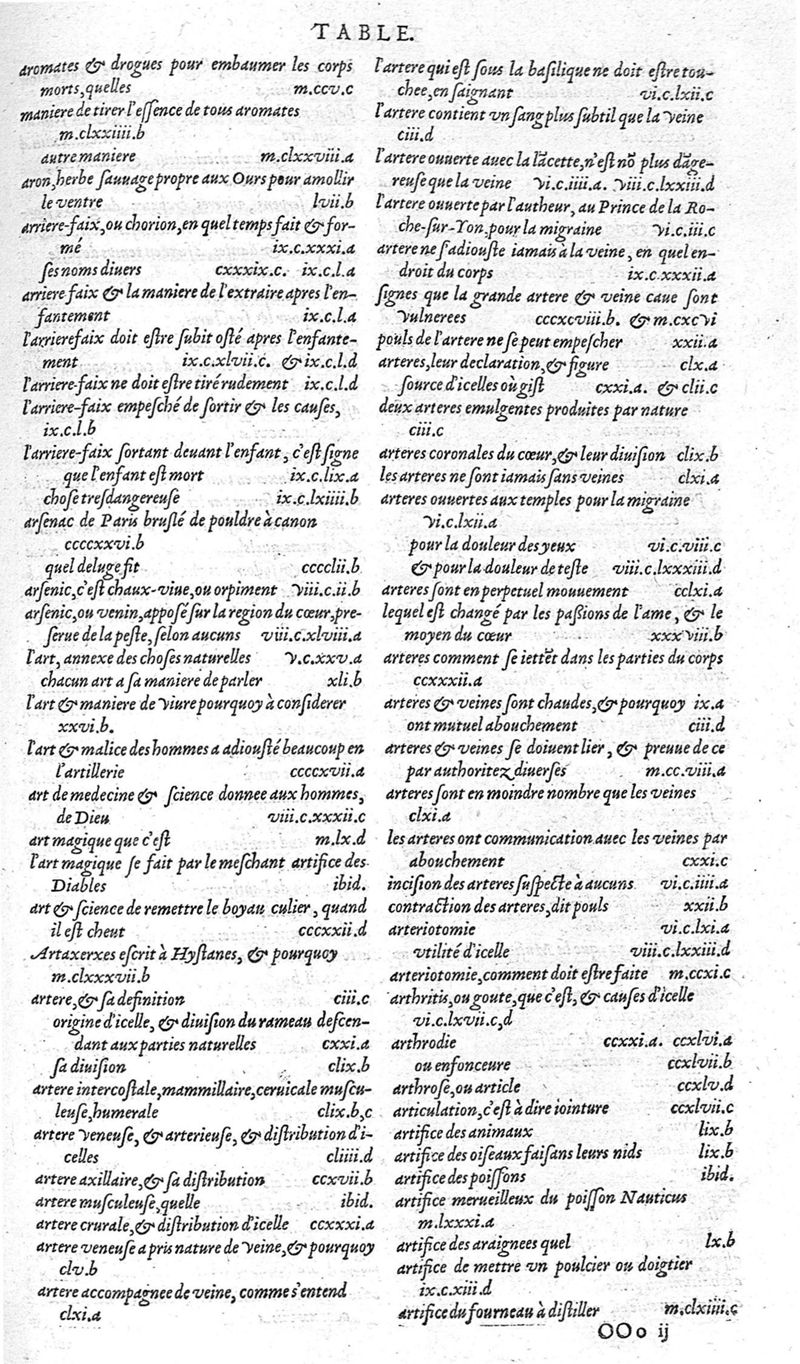 TABLE.
aromates & drogues pour embaumer les corps
morts, quelles m.ccv.c
maniere de tirer l'eſſence de tous aromates
m.clxxiiii.b
autre maniere m.clxxviii.a
aron, herbe ſauuage propre aux Ours pour amollir
le ventre lvii.b
arriere-faix, ou chorion, en quel temps fait & for-
mé ix.c.xxxi.a
ſes noms diuers cxxxix.c. ix.c.l.a
arriere faix & la maniere de l'extraire apres l'en-
fantement ix.c.l.a
l'arrierefaix doit eſtre ſubit oſté apres l'enfante-
ment ix.c.xlvii.c. & ix.c.l.d
l'arriere-faix ne doit eſtre tiré rudement ix.c.l.d
l'arriere-faix empeſché de ſortir & les cauſes,
ix.c.l.b
l'arriere-faix ſortant deuant l'enfant, c'eſt ſigne
que l'enfant eſt mort ix.c.lix.a
choſe treſdangereuſe ix.c.lxiiii.b
arſenac de Paris bruſlé de pouldre à canon
ccccxxvi.b
quel deluge fit cccclii.b
arſenic, c'eſt chaux-viue, ou orpiment viii.c.ii.b
arſenic, ou venin, appoſé ſur la region du cœur, pre-
ſerue de la peſte, ſelon aucuns viii.c.xlviii.a
l'art, annexe des choſes naturelles v.c.xxv.a
chacun art a ſa maniere de parler xli.b
l'art & maniere de viure pourquoy à conſiderer
xxvi.b.
l'art & malice des hommes a adiouſté beaucoup en
l'artillerie ccccxvii.a
art de medecine & ſcience donnee aux hommes,
de Dieu viii.c.xxxii.c
art magique que c'eſt m.lx.d
l'art magique ſe fait par le meſchant artifice des
Diables ibid.
art & ſcience de remettre le boyau culier, quand
il eſt cheut cccxxii.d
Artaxerxes eſcrit à Hyſtanes, & pourquoy
m.clxxxvii.b
artere, & ſa definition ciii.c
origine d'icelle, & diuiſion du rameau deſcen-
dant aux parties naturelles cxxi.a
ſa diuiſion clix.b
artere intercoſtale, mammillaire, ceruicale muſcu-
leuſe, humerale clix.b,c
artere veneuſe, & arterieuſe, & diſtribution d'i-
celles cliiii.d
artere axillaire, & ſa diſtribution ccxvii.b
artere muſculeuſe, quelle ibid.
artere crurale, & diſtribution d'icelle ccxxxi.a
artere veneuſe a pris nature de veine, & pourquoy
clv.b
artere accompagnee de veine, comme s'entend
clxi.a
l'artere qui eſt ſous la baſilique ne doit eſtre tou-
chee, en ſaignant vi.c.lxii.c
l'artere contient vn ſang plus ſubtil que la veine
ciii.d
l'artere ouuerte auec la lãcette, n'eſt nõ plus dãge-
reuſe que la veine vi.c.iiii.a. viii.c.lxxiii.d
l'artere ouuerte par l'autheur, au Prince de la Ro-
che-ſur-Yon, pour la migraine vi.c.iii.c
artere ne s'adiouſte iamais à la veine, en quel en-
droit du corps ix.c.xxxii.a
ſignes que la grande artere & veine caue ſont
vulnerees cccxcviii.b. & m.cxcvi
pouls de l'artere ne ſe peut empeſcher xxii.a
arteres, leur declaration, & figure clx.a
ſource d'icelles où giſt cxxi.a. & clii.c
deux arteres emulgentes produites par nature
ciii.c
arteres coronales du cœur, & leur diuiſion clix.b
les arteres ne ſont iamais ſans veines clxi.a
arteres ouuertes aux temples pour la migraine
vi.c.lxii.a
pour la douleur des yeux vi.c.viii.c
& pour la douleur de teſte viii.c.lxxxiii.d
arteres ſont en perpetuel mouuement cclxi.a
lequel eſt changé par les paßions de l'ame, & le
moyen du cœur xxxviii.b
arteres comment ſe iettẽt dans les parties du corps
ccxxxii.a
arteres & veines ſont chaudes, & pourquoy ix.a
ont mutuel abouchement ciii.d
arteres & veines ſe doiuent lier, & preuue de ce
par authoritez diuerſes m.cc.viii.a
arteres ſont en moindre nombre que les veines
clxi.a
les arteres ont communication auec les veines par
abouchement cxxi.c
inciſion des arteres ſuſpecte à aucuns vi.c.iiii.a
contraction des arteres, dit pouls xxii.b
arteriotomie vi.c.lxi.a
vtilité d'icelle viii.c.lxxiii.d
arteriotomie, comment doit eſtre faite m.ccxi.c
arthritis, ou goute, que c'eſt, & cauſes d'icelle
vi.c.lxvii.c,d
arthrodie ccxxi.a. ccxlvi.a
ou enfonceure ccxlvii.b
arthroſe, ou article ccxlv.d
articulation, c'eſt à dire iointure ccxlvii.c
artifice des animaux lix.b
artifice des oiſeaux faiſans leurs nids lix.b
artifice des poiſſons ibid.
artifice merueilleux du poiſſon Nauticus
m.lxxxi.a
artifice des araignees quel lx.b
artifice de mettre vn poulcier ou doigtier
ix.c.xiii.d
artifice du fourneau à diſtiller m.clxiiii.c
OOo ij